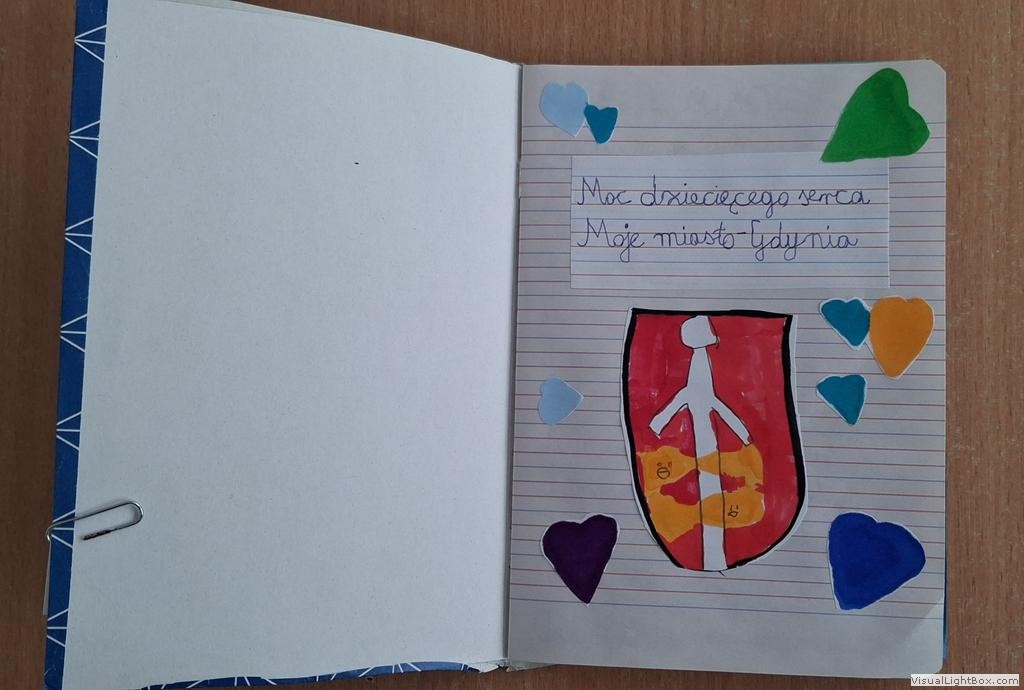 Moc dziecięcego serca
Moje miasto-Gdynia
VisualLightBox.com